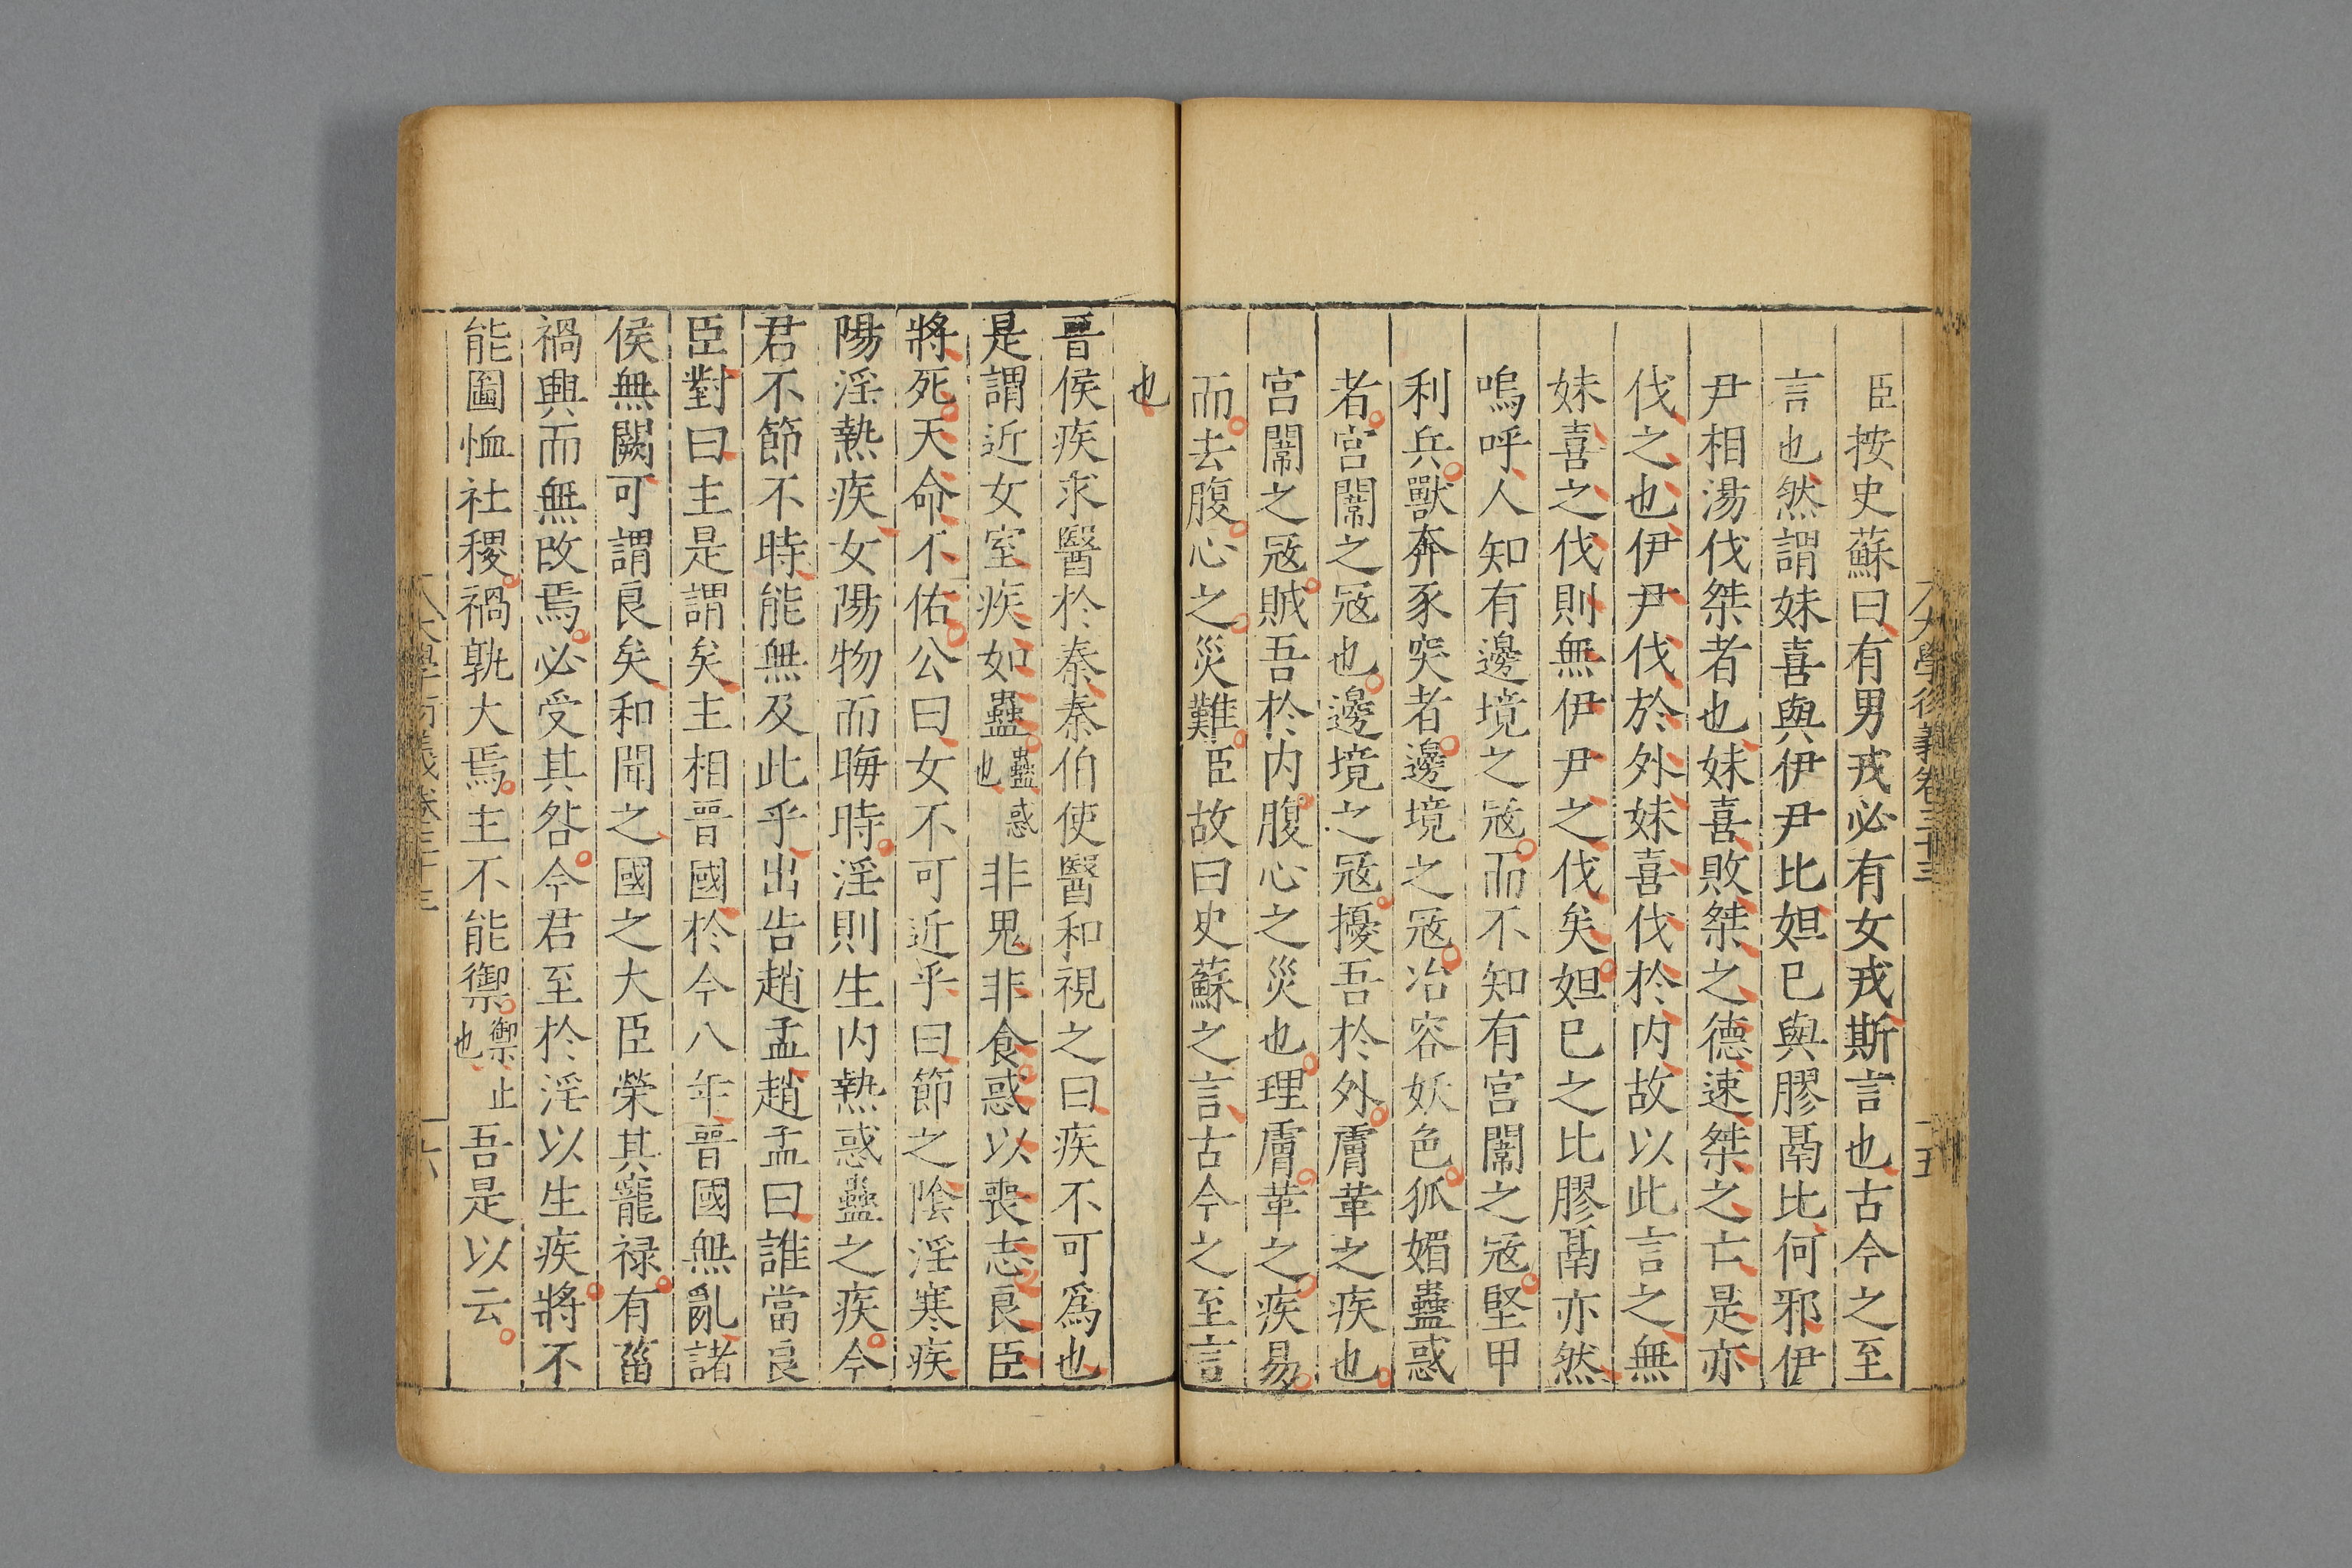 臣按史蘇曰有男戎必有女戎斯言也古今之至
言也然謂妹喜與伊尹比妲已與膠鬲比何邪伊
尹相湯伐桀者也妹喜敗桀之德速桀之亡是亦
伐之也伊尹伐於外妹喜伐於内故以此言之無
妹喜之伐則無伊尹之伐矣妲已之比膠鬲亦然
嗚呼人知有邊境之宼而不知有宫闈之宼堅甲
利兵獸奔豕突者邊境之宼冶容妖色狐媚蠱惑
者宫闈之宼也邊境之宼擾吾於外膚革之疾也
宫闈之宼賊吾於内腹心之災也理膚革之疾易
而去腹心之災難臣故曰史蘇之言古今之至言
也
晉侯疾求醫於秦秦伯使醫和視之曰疾不可爲也
是謂近女室疾如蠱蠱惑也非鬼非食惑以喪志良臣
將死天命不佑公曰女不可近乎曰節之陰淫寒疾
陽淫熱疾女陽物而晦時淫則生内熱惑蠱之疾今
君不節不時能無及此乎出告趙孟趙孟曰誰當良
臣對曰主是謂矣主相晉國於今八年晉國無亂諸
侯無闕可謂良矣和聞之國之大臣榮其寵禄有菑
禍興而無改焉必受其咎今君至於淫以生疾將不
能圖恤社稷禍孰大焉主不能禦禦止也吾是以云